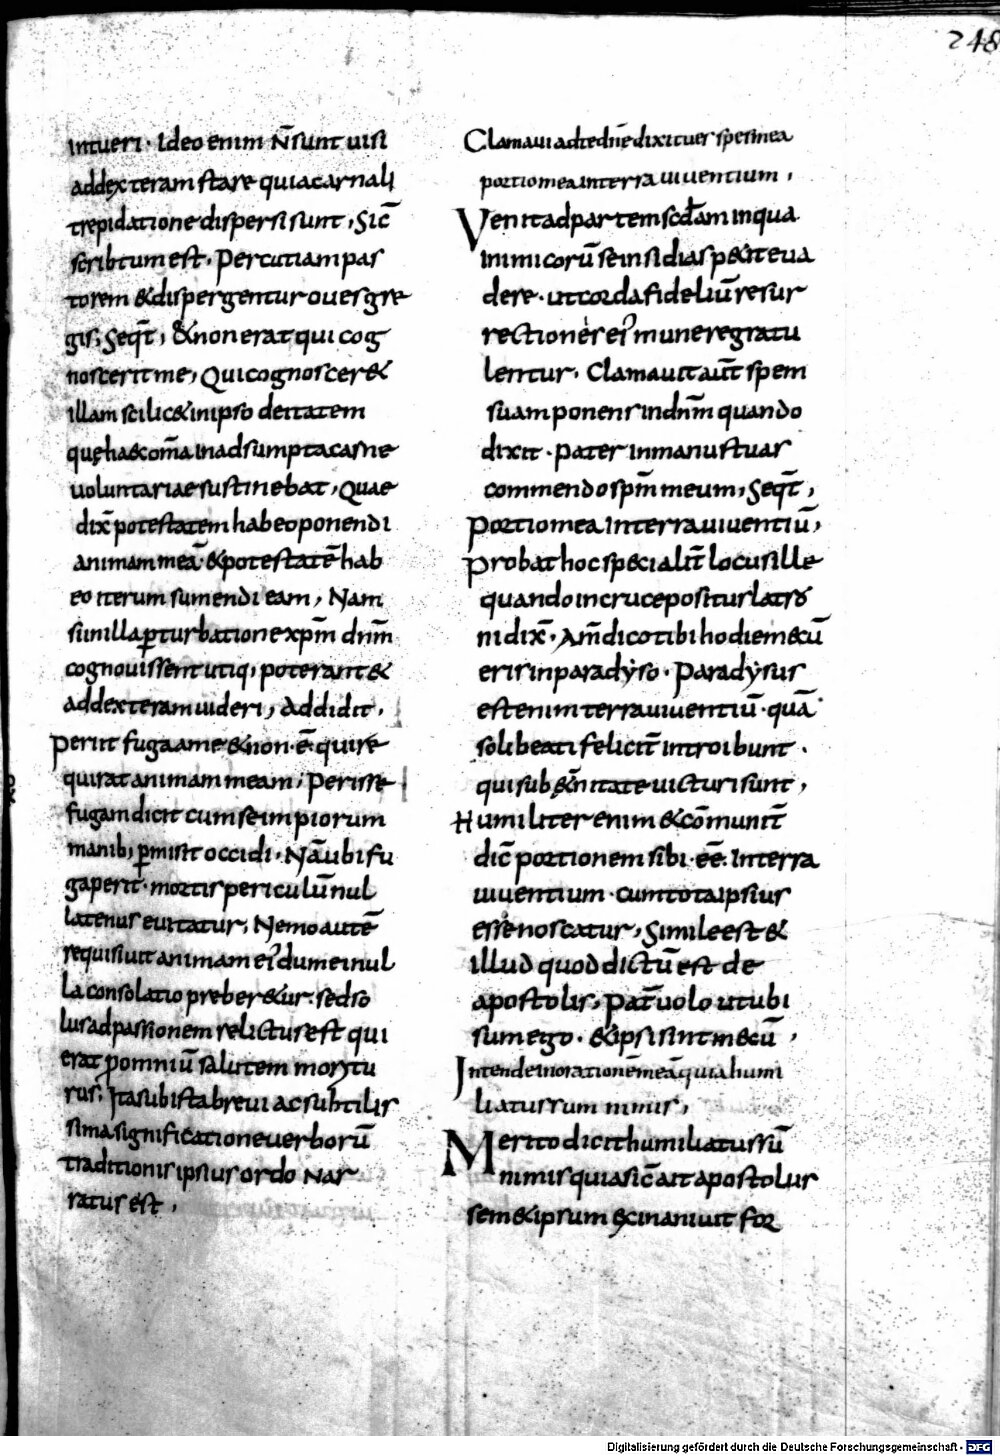 248
intueri · Ideo enim N̄ sunt uisi
ad dexteram stare quia carnali
trepidatione dispersi sunt, Sic̄
scribtum est, Percutiam pas
torem & dispergentur oues gre
gis; Seqt̄, & non erat qui cog
nosceret me, Qui cognoscer&
illam scilic& in ipso deitatem
quę haec om̄a in adsumpta carne
uoluntariae sustinebat, Quae
dix̄ potestatem habeo ponendi
animam meā & potestatē hab
eo iterum sumendi eam, Nam
si in illa ꝑturbatione xp̄m dn̄m
cognouissent utiq; poterant &
ad dexteram uideri, Addidit,
Periit fuga a me & non ē qui re
quirat animam meam; Perisse
fugam dicit cum se impiorum
manib; ꝑmisit occidi, Nā ubi fu
ga perit · mortis periculū nul
latenus euitatur, Nemo autē
requisiuit animam ei dum ei nul
la consolatio preber&ur · sed so
lus ad passionem relictus est qui
erat ꝑ omniū salutem moritu
rus; Ita sub ista breui ac subtilis
sima significatione uerborū
traditionis ipsius ordo nar
ratus est,
Clamaui ad te dn̄e dixi tu es spes mea
portio mea in terra uiuentium,
Venit ad partem scdam in qua
inimicorū se insidias p&it eua
dere · ut corda fideliū resur
rectionis ei munere gratu
lentur, Clamauit aut̄ spem
suam ponens in dn̄m quando
dixit · Pater in manus tuas
commendo sp̄m meum, Seqt̄,
Portio mea in terra uiuentiū,
Probat hoc specialit̄ locus ille
quando in cruce positus latro
ni dix̄ · Am̄ dico tibi hodie mecū
eris in paradyso · Paradysus
est enim terra uiuentiū · quā
soli beati felicit̄ introibunt ·
qui sub &n̄itate uicturi sunt,
Humiliter enim & com̄unit̄
dic̄ portionem sibi · ee · In terra
uiuentium · cum tota ipsius
esse noscatur, Simile est &
illud quod dictū est de
apostolis, Pat̄ uolo ut ubi
sum ego · & ipsi sint mecū,
Intende in orationē meā quia humi
liatus sum nimis,
Merito dicit humiliatus sū
nimis quia sic̄ ait apostolus
sem&ipsum exinaniuit for
Digitalisierung gefördert durch die Deutsche Forschungsgemeinschaft - DFG